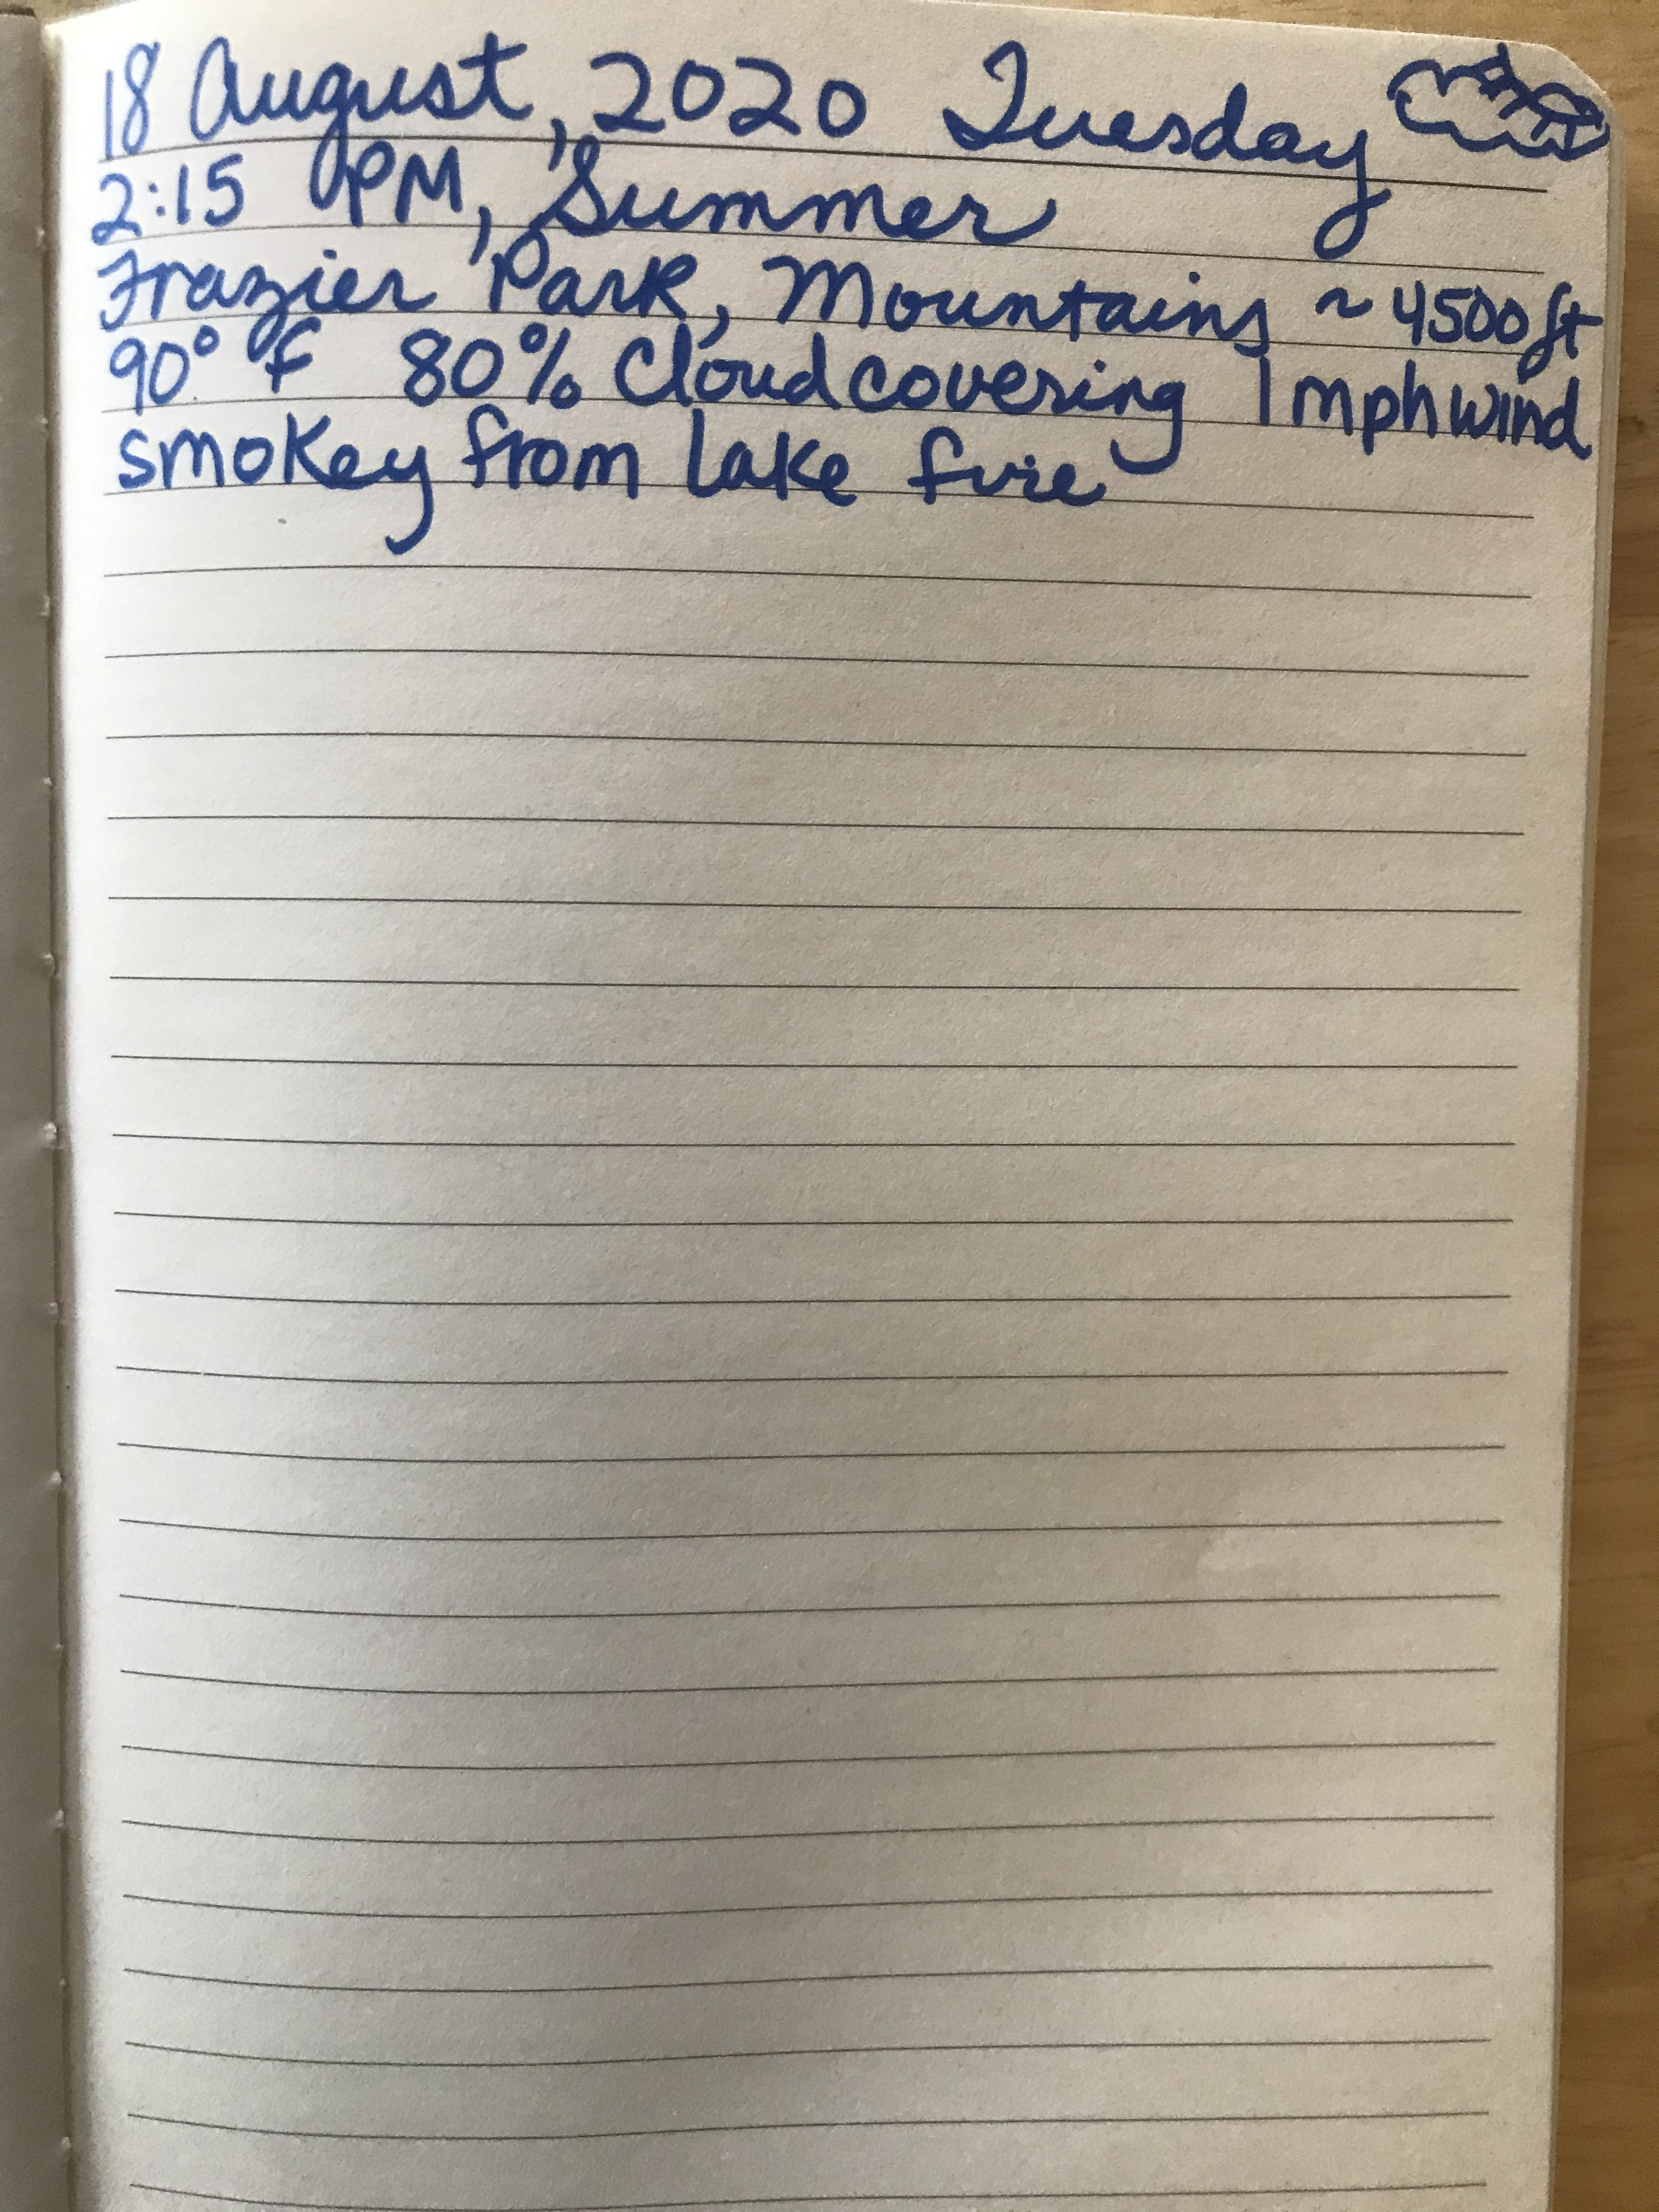 18 August, 2020 Tuesday
2:15 PM, Summer
Frazier Park, Mountains ~ 4500 ft
90° F 80% Cloud covering 1 mph wind
smokey from lake fire